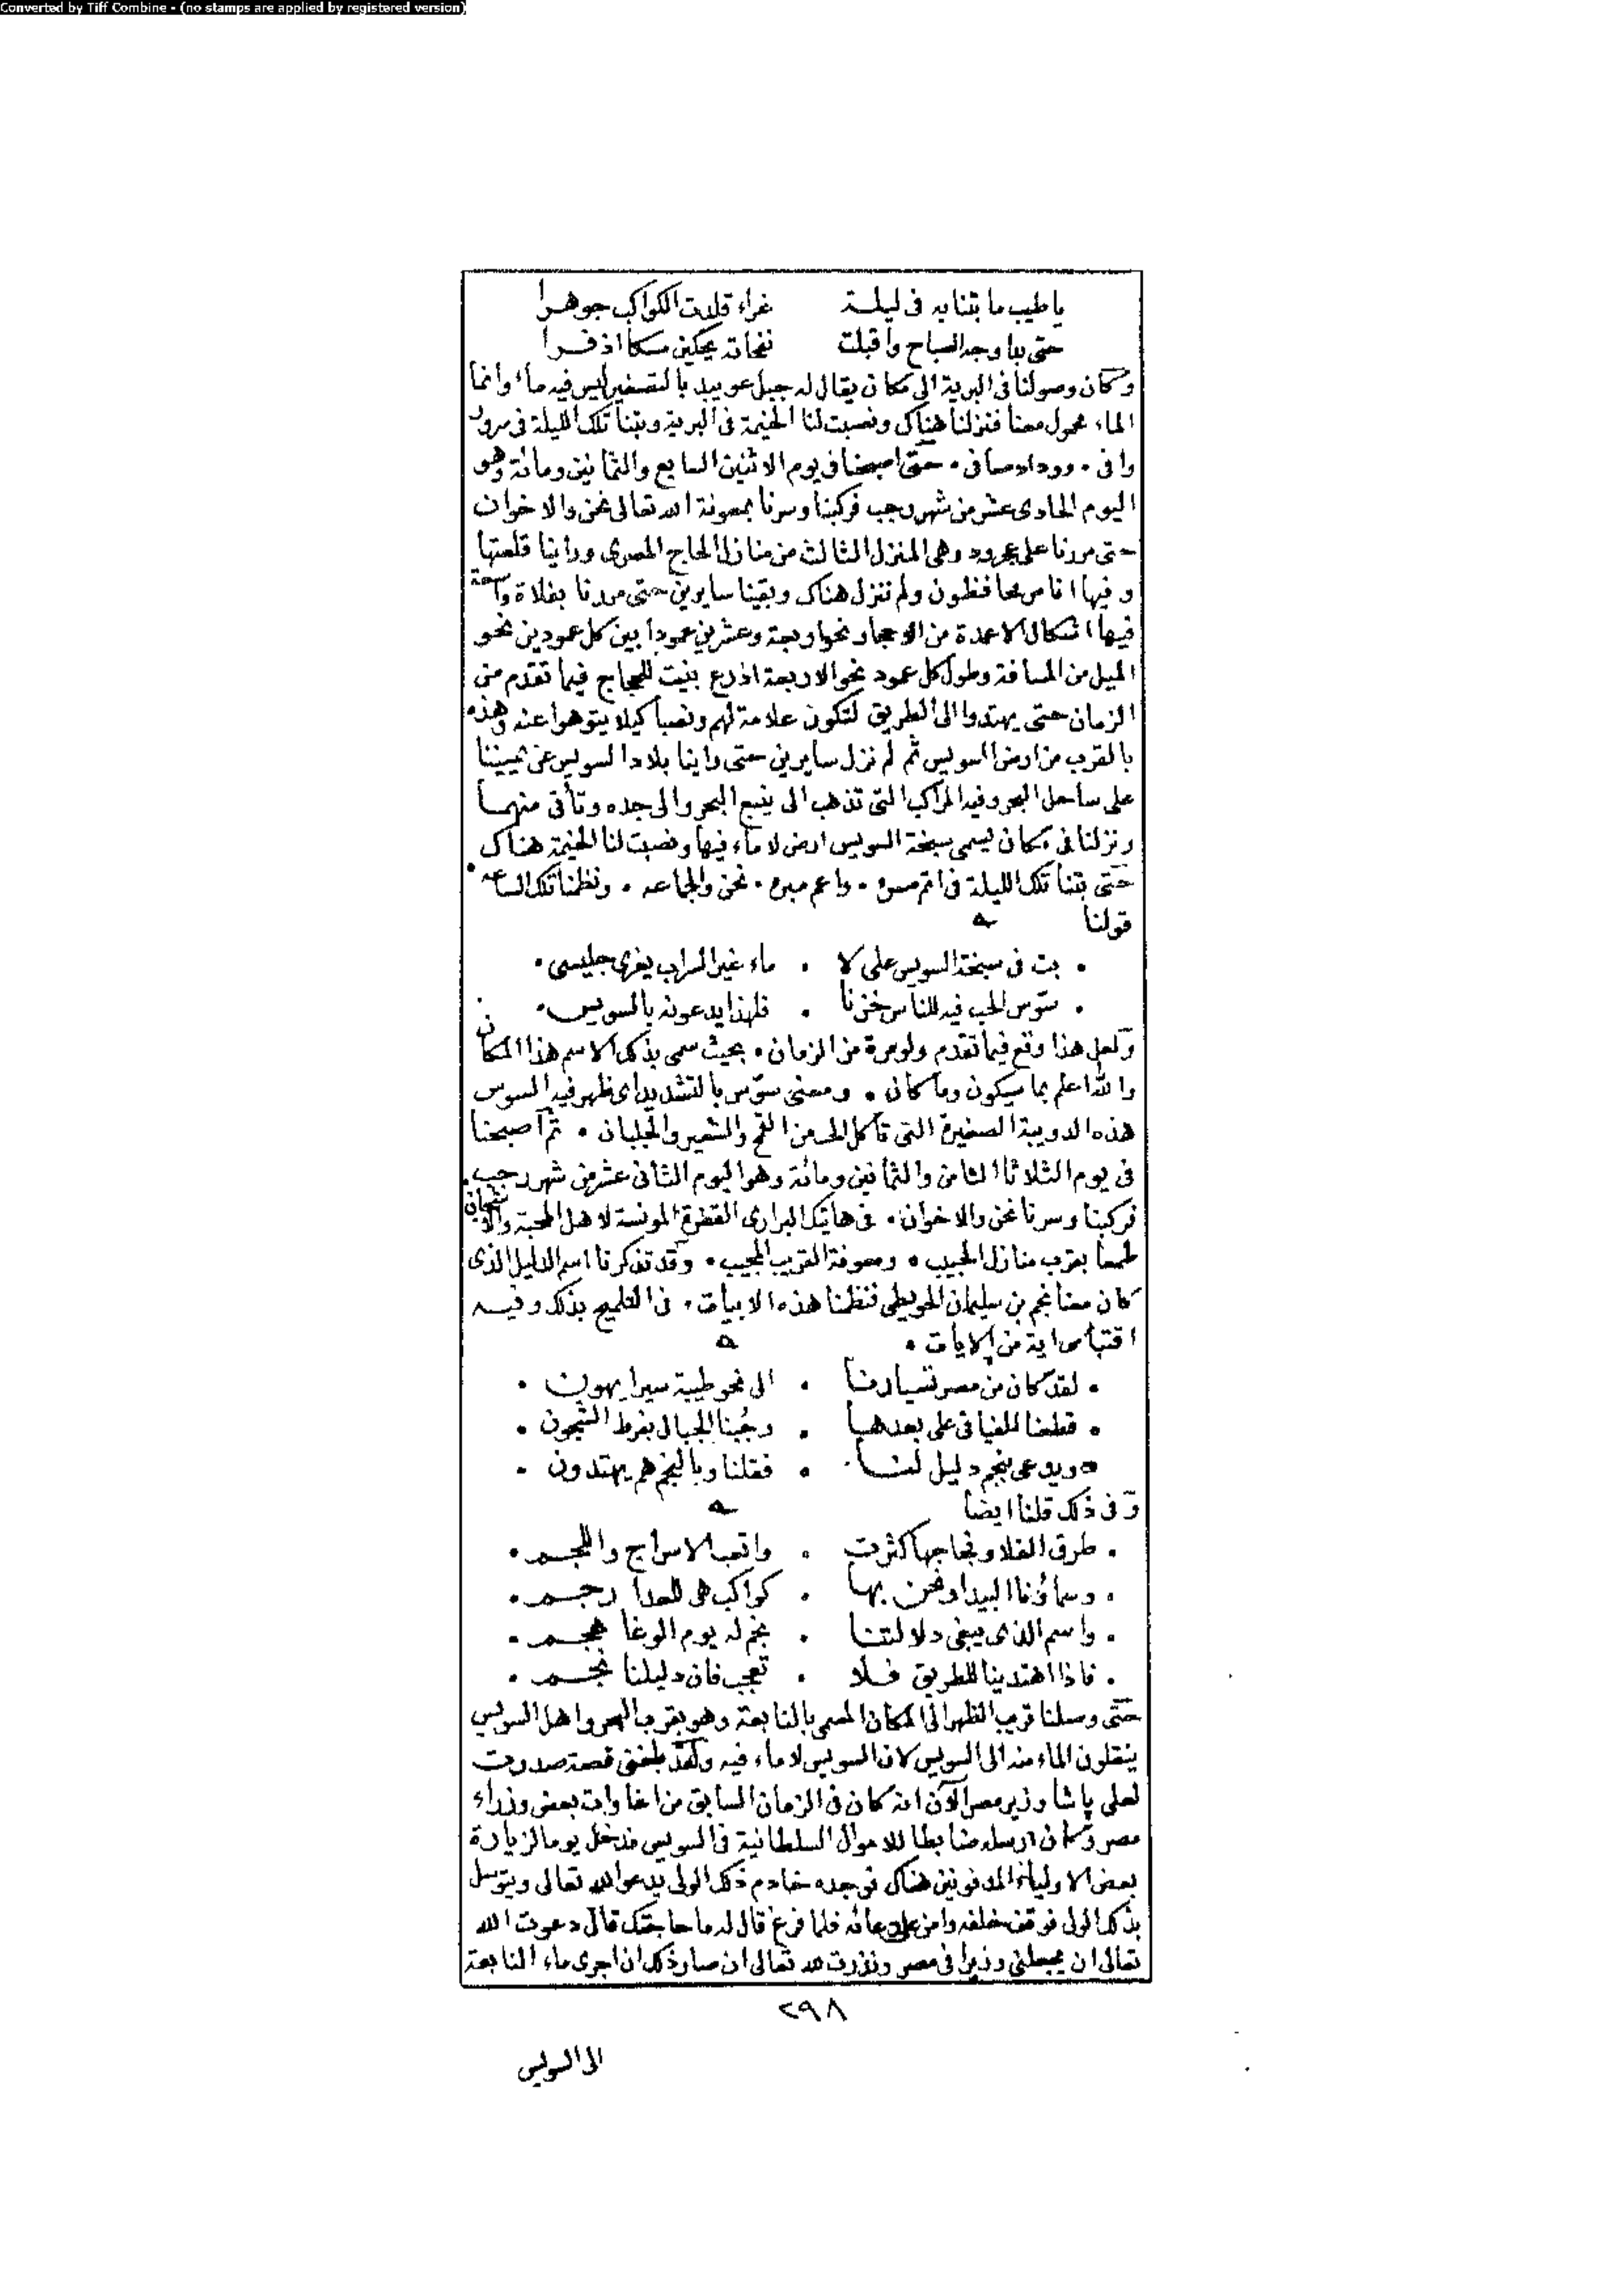 Converted by Tiff Combine - (no stamps are applied by registered version)
يا طيب ما بتنا به فى ليلة غراء قلدت الكواكب جوهرا
حتى بدا وجه الصباح واقبلت نفحاته يحكين مسكا اذفرا
وكان وصولنا فى البرية الى مكان يقال له جبل عويبد بالتصغير ليس فيه ماء وانما
الماء محمول معنا فنزلنا هناك ونصبت لنا الخيمة فى البرية وبتنا تلك الليلة فى سرور
وافى . ووداد صافى . حتى اصبحنا فى يوم الاثنين السابع والثمانين ومائة وهو
اليوم الحادى عشر من شهر رجب فركبنا وسرنا بمعونة الله تعالى نحن والاخوان
حتى مررنا على عجرود وهى المنزل الثالث من منازل الحاج المصرى وراينا قلعتها
وفيها اناس محافظون ولم ننزل هناك وبقينا سايرين حتى مررنا بفلاة واسعة
فيها اشكال الاعمدة من الاحجار نحو اربعة وعشرين عمودا بين كل عمودين نحو
الميل من المسافة وطول كل عمود نحو الاربعة اذرع بنيت للحجاج فيما تقدم من
الزمان حتى يهتدوا الى الطريق لتكون علامة لهم ونصبا كيلا يتوهوا عنه وهذه
بالقرب من ارض السويس ثم لم نزل سايرين حتى راينا بلاد السويس عن يميننا
على ساحل البحر وفيه المراكب التى تذهب الى ينبع البحر والى جده وتأتى منهما
ونزلنا فى مكان يسمى سبخة السويس ارض لا ماء فيها ونصبت لنا الخيمة هناك
حتى بتنا تلك الليلة فى اتم مسرة . واعم مبرة . نحن والجماعه . ونظمنا تلك الساعه .
قولنا
. بت فى سبخة السويس على لا . ماء غير السراب يغرى جليسى .
. سوّس الحب فيه للناس خزنا . فلهذا يدعونه بالسويس .
ولعل هذا وقع فيما تقدم ولو مرة من الزمان . بحيث سمى بذلك الاسم هذا المكان
والله اعلم بما سيكون وما كان . ومعنى سوّس بالتشديد اى ظهر فيه السوس
هذه الدويبة الصغيرة التى تأكل الحب من القمح والشعير والجلبان . ثم اصبحنا
فى يوم الثلاثا الثامن والثمانين ومائة وهو اليوم الثانى عشر من شهر رجب .
فركبنا وسرنا نحن والاخوان . فى هاتيك البرارى القفرة المونسة لاهل المحبة والاشجان
طمعا بقرب منازل الحبيب . ومعونة القريب المجيب . وقد تذكرنا اسم الدليل الذى
كان معنا نجم بن سليمان الحويطى فنظمنا هذه الابيات . فى التلميح بذلك وفيه
اقتباس اية من الايات .
. لقد كان من مصر تسيارنا . الى نحو طيبة سيرا يهون .
. قطعنا الفيافى على بعدها . وجُبنا الجبال بفرط الشجون .
. ويدعى بنجم دليل لنا . فقلنا وبالنجم هم يهتدون .
وفى ذلك قلنا ايضا
. طرق الفلا وفجاجها كثرت . واتعب الاسراج واللجم .
. وسماؤنا البيدا ونحن بها . كواكب هى للعدا رجم .
. واسم الذى يبغى دلالتنا . نجم له يوم الوغا هجم .
. فاذا اهتدينا للطريق فلا . تعجب فان دليلنا نجم .
حتى وصلنا قريب الظهر الى المكان المسمى بالنابعة وهو بقرب البحر واهل السويس
ينقلون الماء منه الى السويس لان السويس لا ماء فيه ولقد بلغنى قصة صدرت
لعلى پاشا وزير مصر الآن انه كان فى الزمان السابق من اغاوات بعض وزراء
مصر وكان ارسله ضابطا للاموال السلطانية فى السويس فدخل يوما لزيارة
بعض الاولياء المدفونين هناك فوجده خادم ذلك الولى يدعو الله تعالى ويتوسل
بذلك الولى فوقف خلفه وامن على دعائه فلما فرغ قال له ما حاجتك قال دعوت الله
تعالى ان يجعلنى وزيرا فى مصر ونذرت لله تعالى ان صار ذلك ان اجرى ماء النابعة
٢٩٨
الى السويس